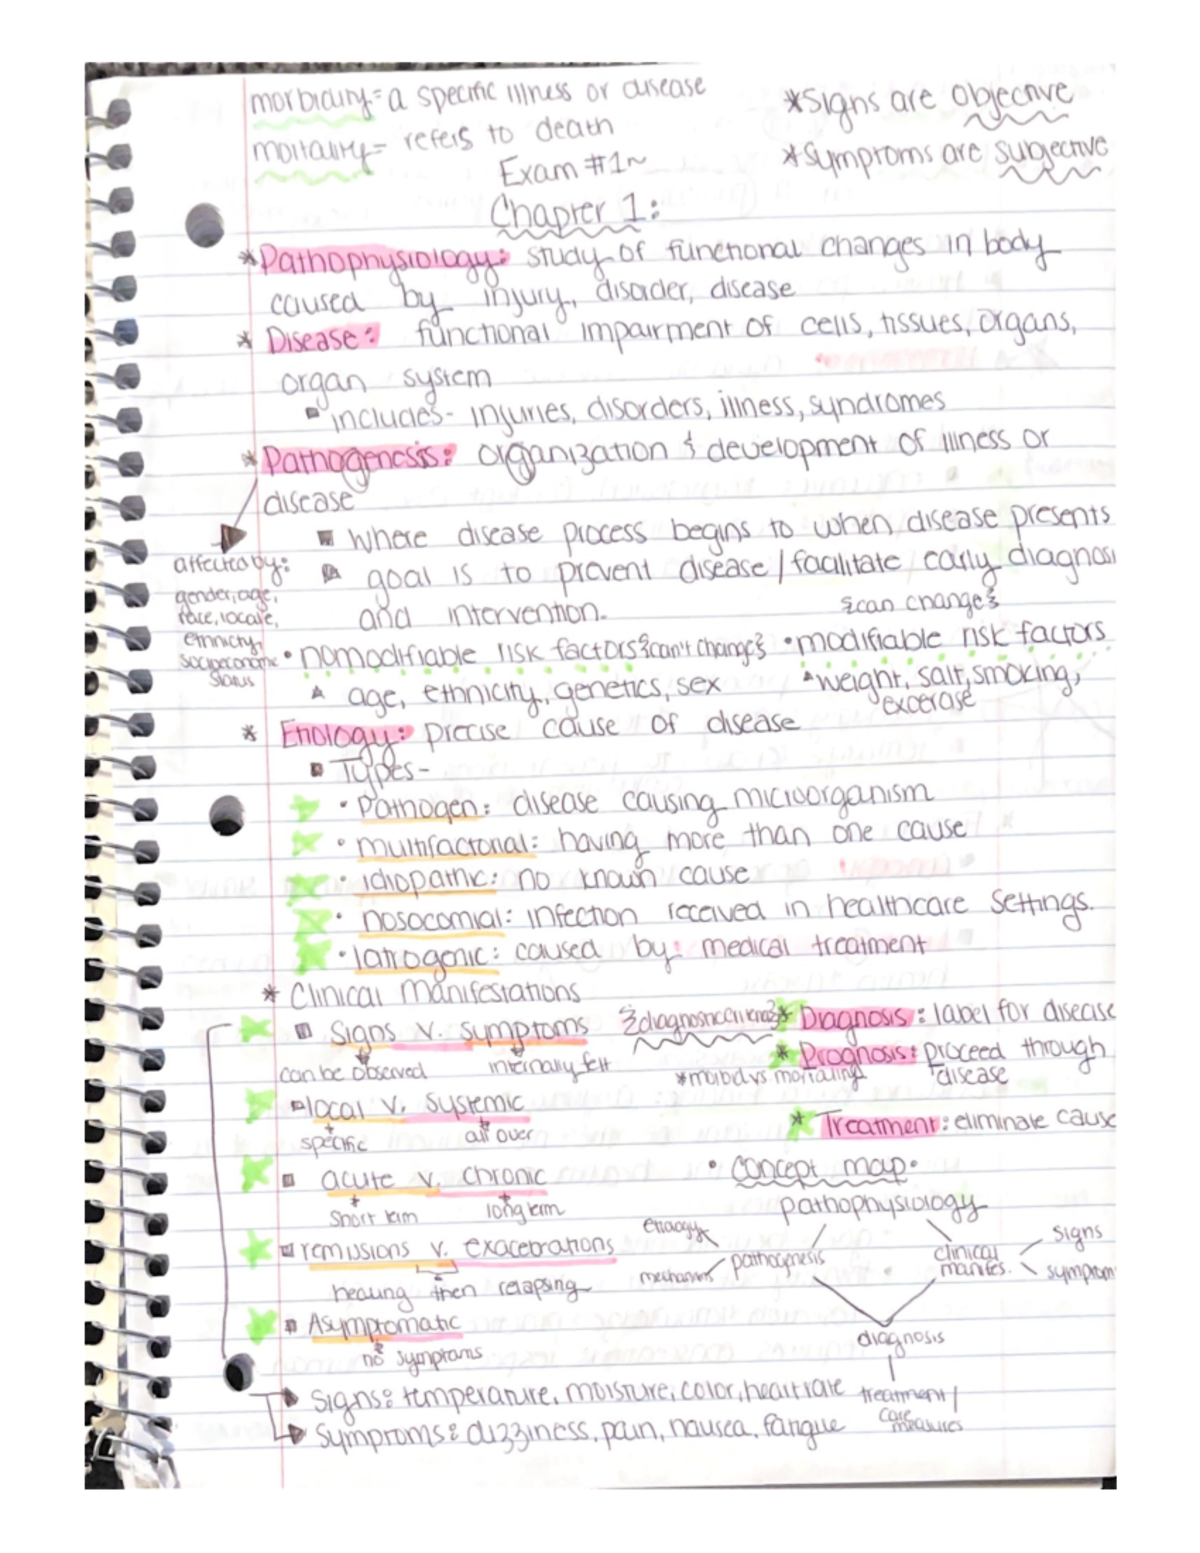 morbidity= a specific illness or disease
*Signs are objective
mortality= refers to death
*Symptoms are subjective
Exam #1~
Chapter 1:
*Pathophysiology: study of functional changes in body
caused by injury, disorder, disease
* Disease: functional impairment of cells, tissues, organs,
organ system
includes- injuries, disorders, illness, syndromes
*Pathogenesis: organization & development of illness or
disease
Where disease process begins to when disease presents
goal is to prevent disease/facilitate early diagnosi
and intervention.
affected by:
gender, age,
race, locale,
ethnicity,
socioeconomic
status
{can change}
• nomodifiable risk factors {can't change} • modifiable risk factors
age, ethnicity, genetics, sex
weight, salt, smoking,
excerase
* Etiology: precise cause of disease
Types-
• Pathogen: disease causing microorganism
• multifactorial: having more than one cause
• idiopathic: no known cause
• nosocomial: infection received in healthcare settings.
• Iatrogenic: caused by: medical treatment
* Clinical Manifestations
Signs v. symptoms
can be observed internally felt
local v. systemic
specific all over
acute v. chronic
short term long term
remissions v. exacerbations
healing then relapsing
Asymptomatic
no symptoms
{diagnostic criteria}
* Diagnosis: label for disease
* Prognosis: proceed through
disease
*morbid vs mortality
* Treatment: eliminate cause
• concept map •
pathophysiology
etiology
pathogenesis
mechanisms
clinical
manifes.
signs
symptom
diagnosis
treatment/
care
measures
Signs: temperature, moisture, color, heart rate
Symptoms: dizziness, pain, nausea, fatigue